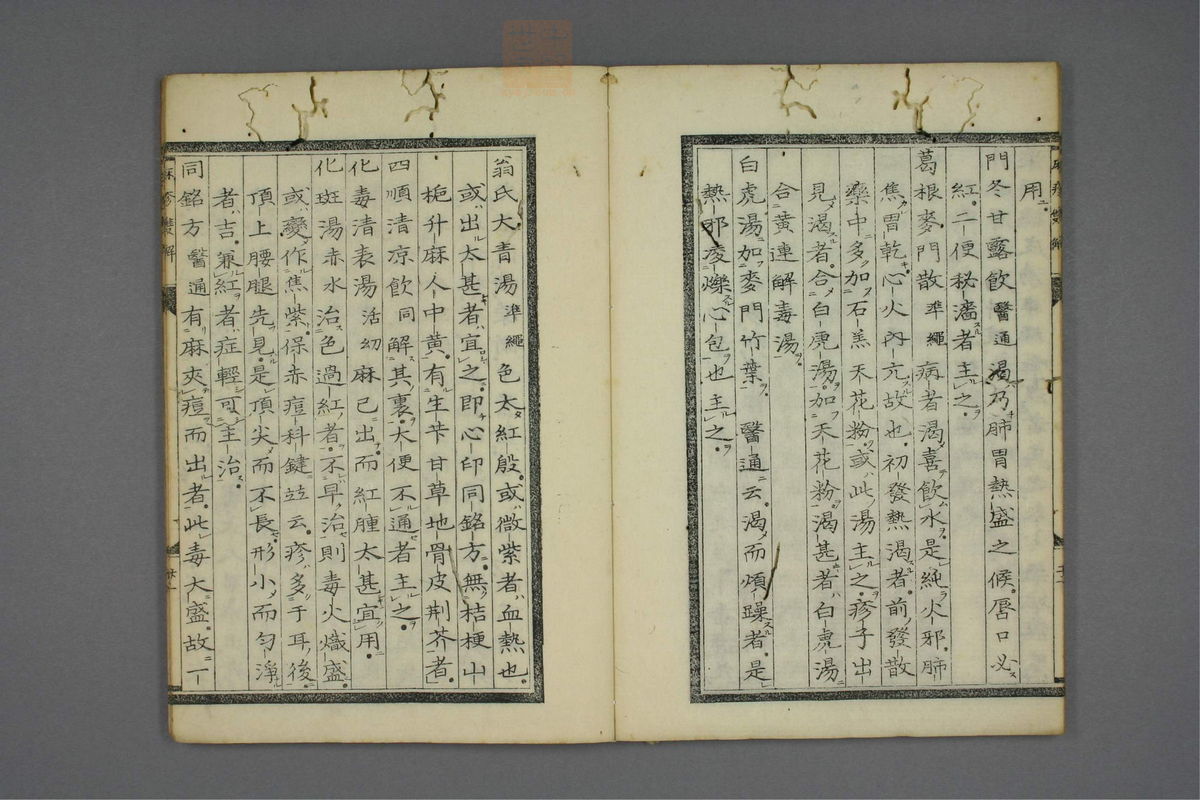 用
門冬甘露飲醫通渴乃肺胃熱盛之候唇口必
紅二便秘濇者主之
葛根麥門散準繩病者渴喜飲水是純火邪肺
焦胃乾心火內亢故也初發熱渴者前發散
藥中多加石羔天花粉或此湯主之疹子出
見渴者合白虎湯加天花粉渴甚者白虎湯
合黃連解毒湯
白虎湯加麥門竹葉醫通云渴而煩躁者是
熱邪凌爍心包也主之
翁氏大青湯準繩色太紅殷或微紫者血熱也
或出太甚者宜之即心印同銘方無桔梗山
梔升麻人中黃有生芐甘草地骨皮荆芥者
四順清凉飲同解其裏大便不通者主之
化毒清表湯活幼麻已出而紅腫太甚宜用
化斑湯赤水治色過紅者不早治則毒火熾盛
或變作焦紫保赤痘科鍵竝云疹多于耳後
頂上腰腿先見是頂尖而不長形小而匀淨
者吉兼紅者症輕可主治
同銘方醫通有麻夾痘而出者此毒大盛故一
麻疹雙解